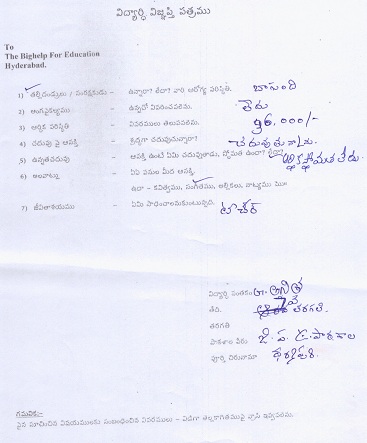 విద్యార్థి విజ్ఞప్తి పత్రము
To
The Bighelp For Education
Hyderabad.
1) తల్లిదండ్రులు / సంరక్షకుడు – ఉన్నారా? లేదా? వారి ఆరోగ్య పరిస్థితి. బాసుంది
2) అంగవైకల్యము – ఉన్నచో వివరించవలెను. లేదు
3) ఆర్థిక పరిస్థితి – వివరములు తెలుపవలెను. 96,000/-
4) చదువు పై ఆసక్తి – శ్రద్ధగా చదువుచున్నారా? చదువుతున్నాను.
5) ఉన్నతచదువు – ఆసక్తి ఉంటే ఏమి చదువుతారు, స్తోమత ఉందా? లేదా? ఆర్థికస్తోమత లేదు.
6) అలవాట్లు – ఏఏ పనుల మీద ఆసక్తి.
ఉదా – కవిత్వము, సంగీతము, అల్లికలు, నాట్యము
7) జీవితాశయము – ఏమి సాధించాలనుకుంటున్నది. టీచర్
విద్యార్థి సంతకం G. అనిత
తేది. 7వ తరగతి.
తరగతి
పాఠశాల పేరు జి. ప. ఉ. పాఠశాల
పూర్తి చిరునామా
గమనిక:-
పైన సూచించిన విషయములకు సంబంధించిన వివరములు – విడిగా తెల్లకాగితముపై వ్రాసి ఇవ్వవలెను.